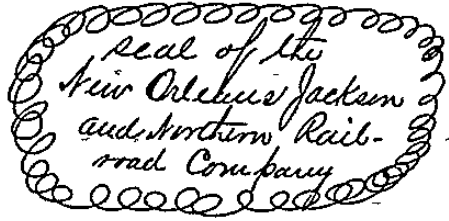 seal of the
New Orleans Jackson
and Northern Rail-
road Company